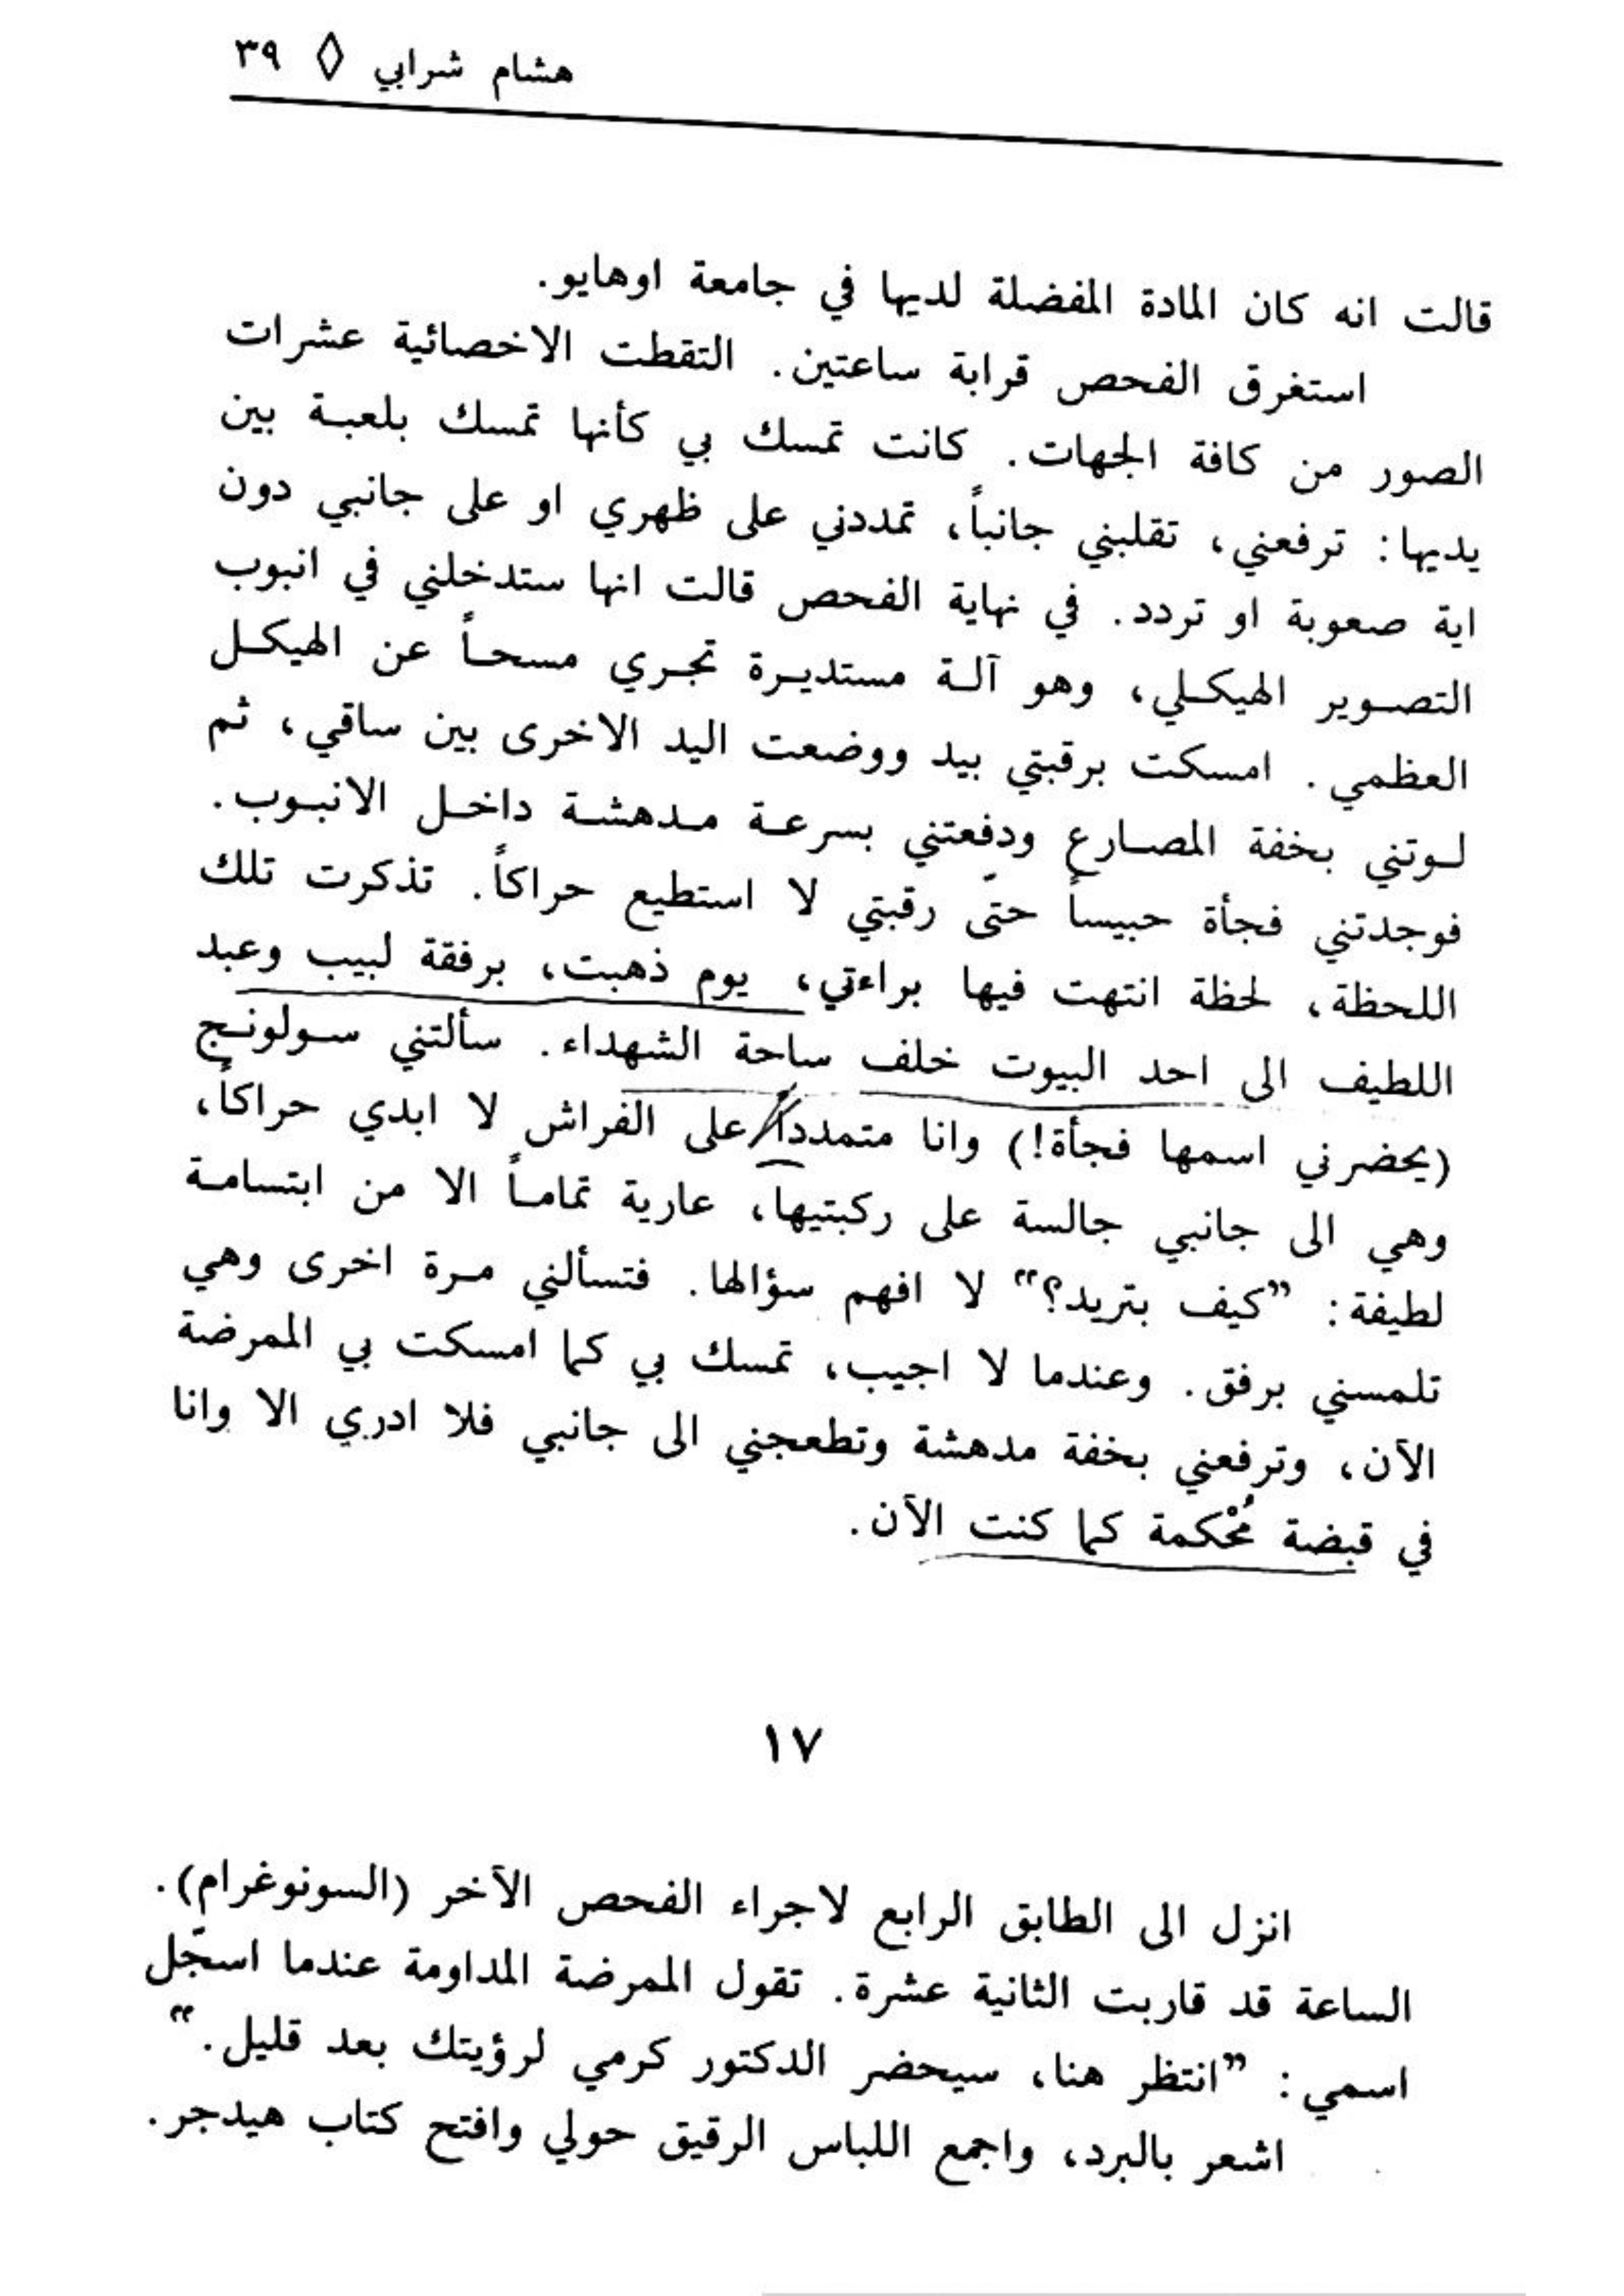 هشام شرابي ◊ ٣٩
قالت انه كان المادة المفضلة لديها في جامعة اوهايو.
استغرق الفحص قرابة ساعتين. التقطت الاخصائية عشرات
الصور من كافة الجهات. كانت تمسك بي كأنها تمسك بلعبة بين
يديها: ترفعني، تقلبني جانباً، تمددني على ظهري او على جانبي دون
اية صعوبة او تردد. في نهاية الفحص قالت انها ستدخلني في انبوب
التصوير الهيكلي، وهو آلة مستديرة تجري مسحاً عن الهيكل
العظمي. امسكت برقبتي بيد ووضعت اليد الاخرى بين ساقي، ثم
لوتني بخفة المصارع ودفعتني بسرعة مدهشة داخل الانبوب.
فوجدتني فجأة حبيساً حتّى رقبتي لا استطيع حراكاً. تذكرت تلك
اللحظة، لحظة انتهت فيها براءتي، يوم ذهبت، برفقة لبيب وعبد
اللطيف الى احد البيوت خلف ساحة الشهداء. سألتني سولونج
(يحضرني اسمها فجأة!) وانا متمدداً على الفراش لا ابدي حراكاً،
وهي الى جانبي جالسة على ركبتيها، عارية تماماً الا من ابتسامة
لطيفة: ”كيف بتريد؟“ لا افهم سؤالها. فتسألني مرة اخرى وهي
تلمسني برفق. وعندما لا اجيب، تمسك بي كما امسكت بي الممرضة
الآن، وترفعني بخفة مدهشة وتطعجني الى جانبي فلا ادري الا وانا
في قبضة مُحْكمة كما كنت الآن.
١٧
انزل الى الطابق الرابع لاجراء الفحص الآخر (السونوغرام).
الساعة قد قاربت الثانية عشرة. تقول الممرضة المداومة عندما اسجّل
اسمي: ”انتظر هنا، سيحضر الدكتور كرمي لرؤيتك بعد قليل.“
اشعر بالبرد، واجمع اللباس الرقيق حولي وافتح كتاب هيدجر.